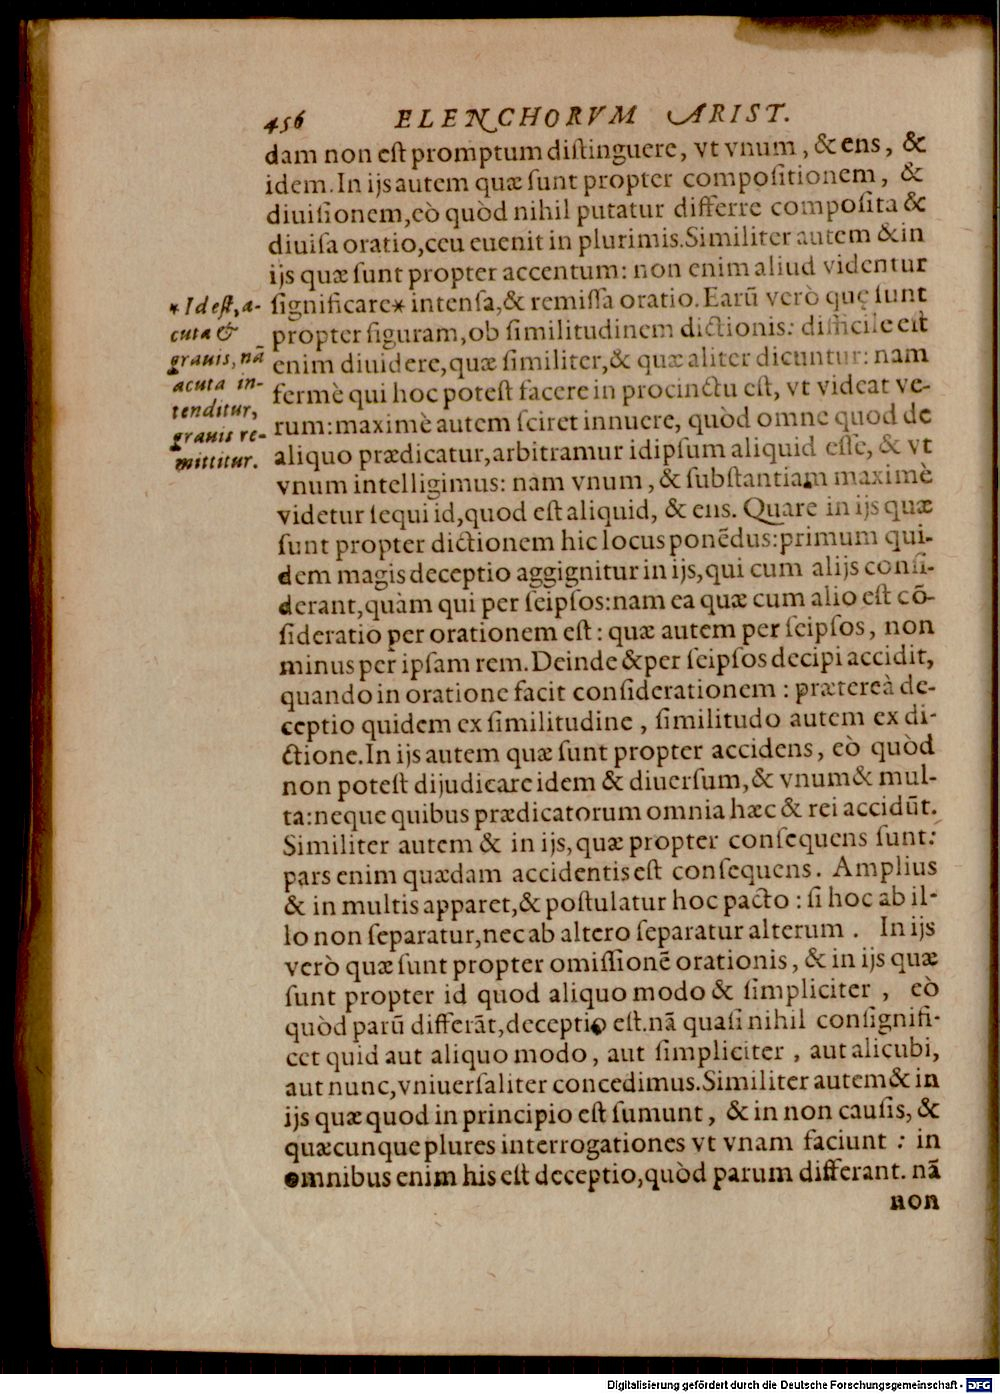 456 ELENCHORVM ARIST.
dam non eſt promptum diſtinguere, vt vnum, & ens, &
idem. In ijs autem quæ ſunt propter compoſitionem, &
diuiſionem, eò quòd nihil putatur differre compoſita &
diuiſa oratio, ceu euenit in plurimis. Similiter autem & in
ijs quæ ſunt propter accentum: non enim aliud videntur
ſignificare* intenſa, & remiſſa oratio. Earū verò quę ſunt
propter figuram, ob ſimilitudinem dictionis: difficile eſt
enim diuidere, quæ ſimiliter, & quæ aliter dicuntur: nam
fermè qui hoc poteſt facere in procinctu eſt, vt videat ve-
rum: maximè autem ſciret innuere, quòd omne quod de
aliquo prædicatur, arbitramur idipſum aliquid eſſe, & vt
vnum intelligimus: nam vnum, & ſubſtantiam maximè
videtur ſequi id, quod eſt aliquid, & ens. Quare in ijs quæ
ſunt propter dictionem hic locus ponēdus: primum qui-
dem magis deceptio aggignitur in ijs, qui cum alijs conſi-
derant, quàm qui per ſeipſos: nam ea quæ cum alio eſt cō-
ſideratio per orationem eſt: quæ autem per ſeipſos, non
minus per ipſam rem. Deinde & per ſeipſos decipi accidit,
quando in oratione facit conſiderationem: prætereà de-
ceptio quidem ex ſimilitudine, ſimilitudo autem ex di-
ctione. In ijs autem quæ ſunt propter accidens, eò quòd
non poteſt dijudicare idem & diuerſum, & vnum & mul-
ta: neque quibus prædicatorum omnia hæc & rei accidūt.
Similiter autem & in ijs, quæ propter conſequens ſunt:
pars enim quædam accidentis eſt conſequens. Amplius
& in multis apparet, & poſtulatur hoc pacto: ſi hoc ab il-
lo non ſeparatur, nec ab altero ſeparatur alterum. In ijs
verò quæ ſunt propter omiſſionē orationis, & in ijs quæ
ſunt propter id quod aliquo modo & ſimpliciter, eò
quòd parū differāt, deceptio eſt. nā quaſi nihil conſignifi-
cet quid aut aliquo modo, aut ſimpliciter, aut alicubi,
aut nunc, vniuerſaliter concedimus. Similiter autem & in
ijs quæ quod in principio eſt ſumunt, & in non cauſis, &
quæcunque plures interrogationes vt vnam faciunt: in
omnibus enim his eſt deceptio, quòd parum differant. nā
non
* Id eſt, a-
cuta &
grauis, nā
acuta in-
tenditur,
grauis re-
mittitur.
Digitalisierung gefördert durch die Deutsche Forschungsgemeinschaft - DFG